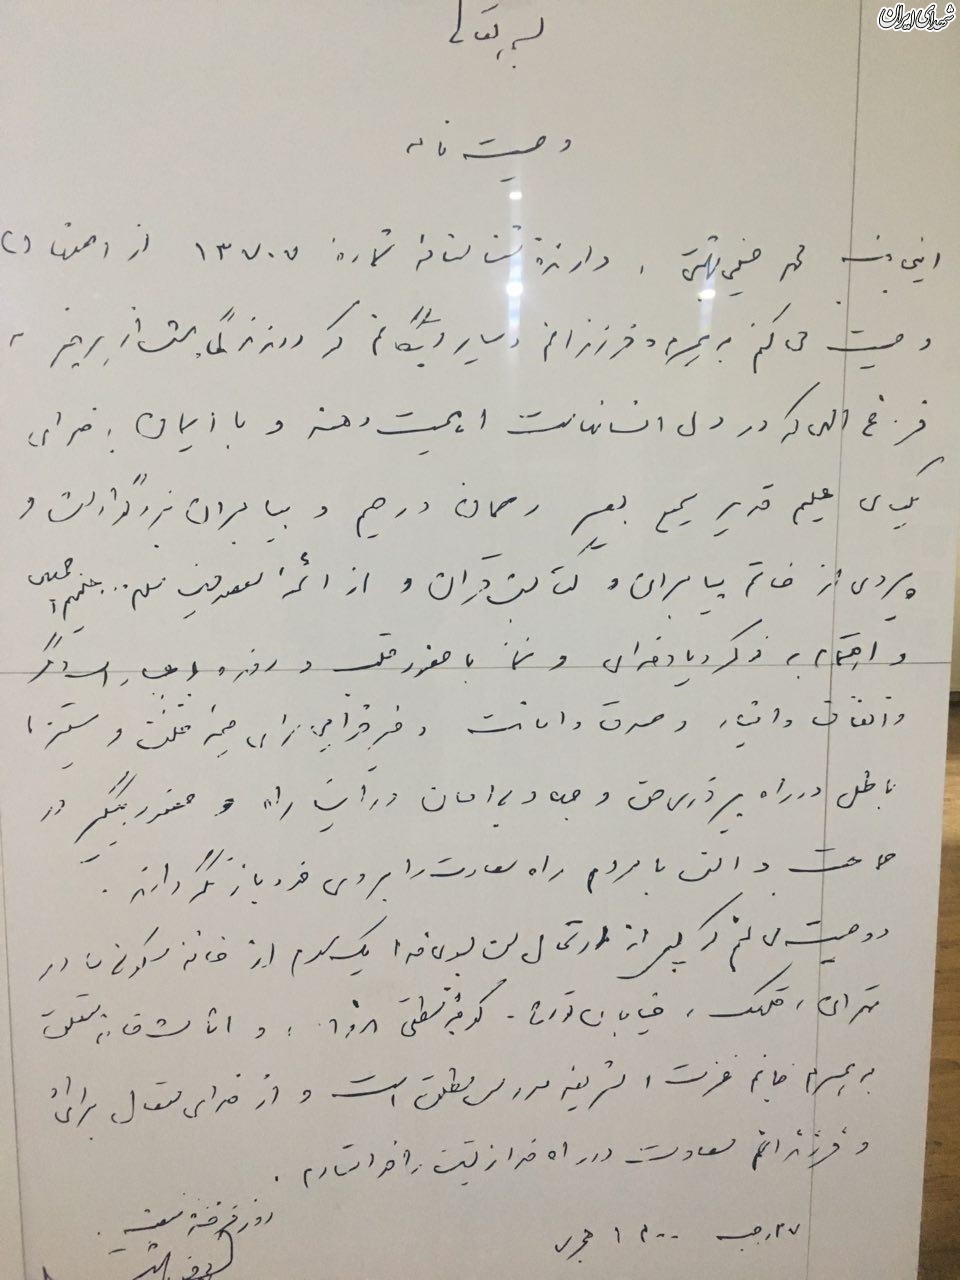 شهدای ایران
بسمه تعالی
وصیت نامه
اینجانب محمد حسینی بهشتی، دارنده شناسنامه شماره ۱۳۷۰۷ از اصفهان
وصیت می کنم به همسرم و فرزندانم و سایر بستگانم که در زندگی بیش از هر چیز به
فروغ الهی که در دل انسانهاست اهمیت دهند و با ایمان به خدای
یکتای علیم قدیر سمیع بصیر رحمان و رحیم و پیامبران بزرگوارش و
پیروی از خاتم پیامبران و کتابش قرآن و از ائمه معصومین سلام الله علیهم اجمعین
و اهتمام به ذکر و یاد خدای و نماز با حضور قلب و روزه و عبادات دیگر
و انفاق و ایثار و صدق و امانت و ستیز با
باطل در راه پیروزی حق و جهاد بی امان در این راه و حضور پیگیر در
جماعت و انس با مردم راه سعادت را بروی خود باز نگه دارند.
و وصیت می کنم که پس از ارتحال من بسوی خدا یک سوم از خانه مسکونی ما در
تهران، قلهک، خیابان تورج - کوچه منطقی، و اثاث خانه متعلق
به همسرم خانم عزت الشریعه مدرس مطلق است و از خدای متعال برای او
و فرزندانم سعادت در راه خدا زیستن را خواستارم.
روز فرخنده مبعث
۲۷ رجب ۱۴۰۰ هجری